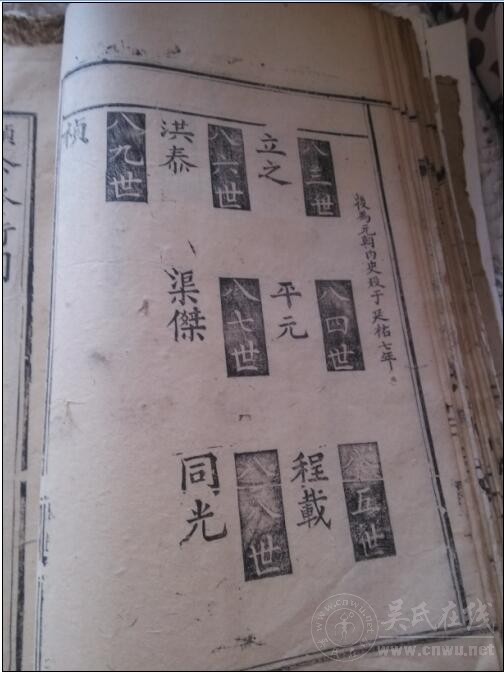 後為元朝內史殁于延祐七年
八三世
立之
八四世
平元
八五世
程載
八六世
洪泰
八七世
渠傑
八八世
同光
八九世
禎
吴氏在线
www.cnwu.net